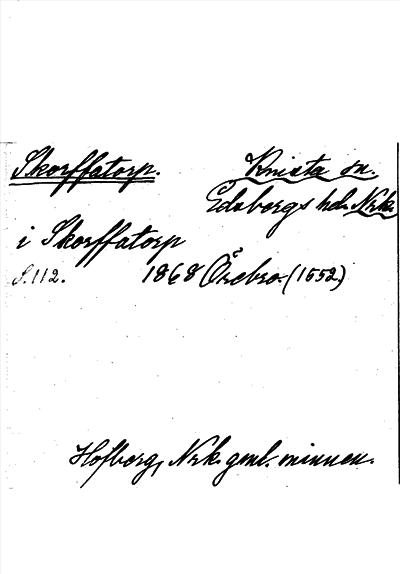 Skorffatorp. Knista sn.
Edsbergs hd. Nrk.
i Skorffatorp
S. 112. 1868 Örebro. (1552.)
Hofberg, Nrk. gml. minnen.